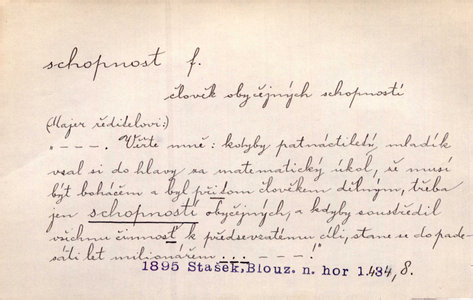 schopnost f.
člověk obyčejných schopností
(Majer řediteloví:)
„ – – – . Věřte mně: kdyby patnáctiletý mladík
vsal si do hlavy za matematický úkol, že musí
být boháčem a byl při tom člověkem dílným, třeba
jen schopností obyčejných, a kdyby soustředil
všechnu činnost k předsevzatému cíli, stane se do pade-
sáti let milionářem ... – – – ."
1895 Stašek, Blouz. n. hor 1.434, 8.